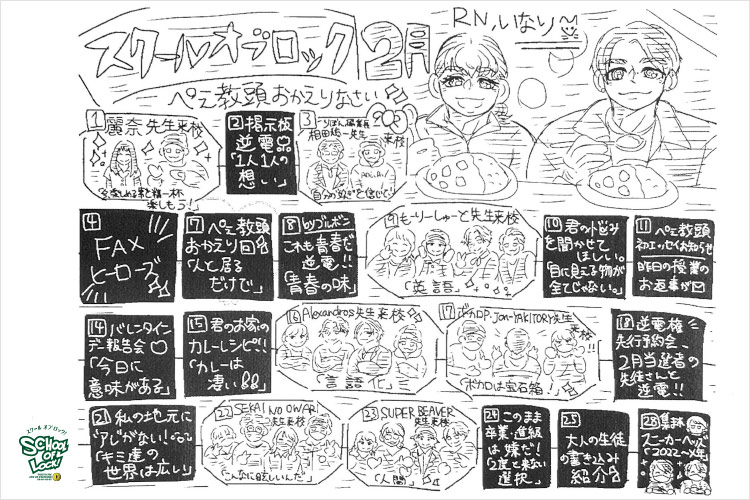 スクールオブロック 2月
RN,いなり
ぺえ教頭おかえりなさい
1 麗奈先生来校
今楽しめる事を精一杯
楽しもう!」
2 掲示板
逆電
「1人1人の
想い」
3
りぼん編集長
相田聡一先生
来校
4
FAX
ヒーローズ
7 ぺえ教頭
おかえり回
「人と居る
だけで」
8 byブルボン
これも青春だ
逆電!!
「青春の味」
9 もーりーしゅーと先生来校
「英語」
10 君の悩み
を聞かせて
ほしい。
「目に見える物が
全てじゃない。」
11 ぺえ教頭
初エッセイお知らせ
昨日の授業の
お返事が回
14 バレンタイン
デー報告会
「今日に
意味がある」
15 君のお家の
カレーレシピ!!
「カレーは
凄い」
16 Alexandros先生来校
「言語化」
17 ボカロP・Jon-YAKITORY先生
来校!!
「ボカロは宝石箱!」
18 逆電権
先行予約会、
2月当選者の
生徒さんと
逆電!!
21 私の地元に
〝アレ〟がない!
「キミ達の
世界は広い」
22 SEKAI NO OWARI
先生来校
「こんなに眩しいんだ」
23 SUPER BEAVER
先生来校
「人間」
24 このまま
卒業・進級
は嫌だ!
「2度と来ない
選択」
25
大人の生徒
の書き込み
紹介
28 集まれ
スニーカーヘッズ
「2022〜×年」
スクール オブ ロック!
SCHOOL
OF
LOCK!